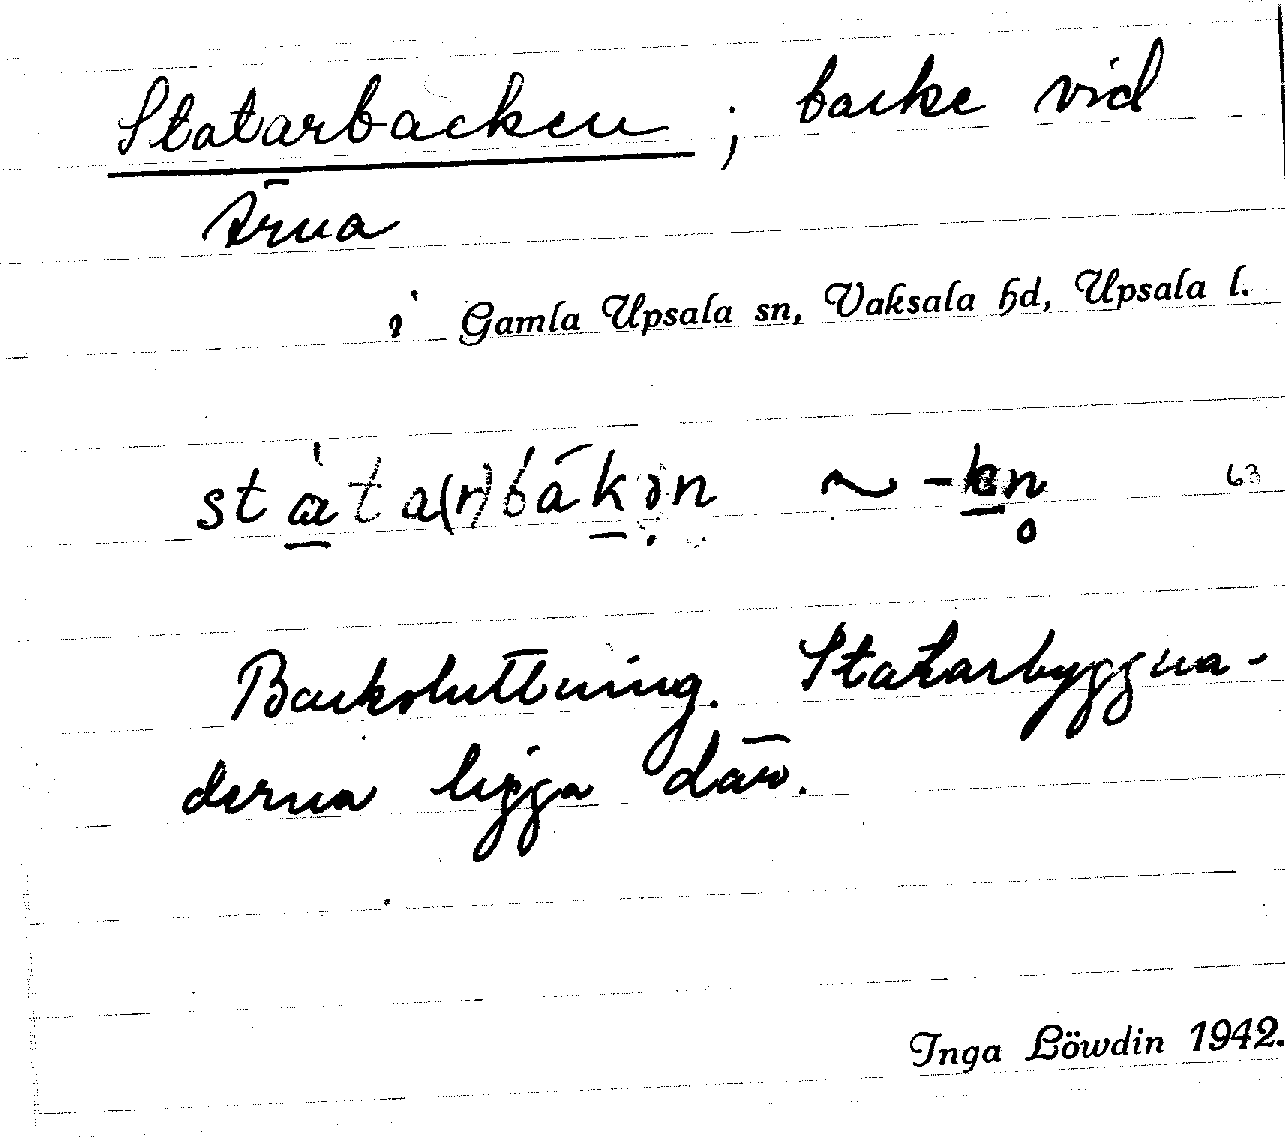 Statarbacken ; backe vid
Ärna
i Gamla Upsala sn, Vaksala hd, Upsala l.
stàta(r)bákən ~ -kn̥ 63
Backsluttning. Statarbyggna-
derna ligga där.
Inga Löwdin 1942.